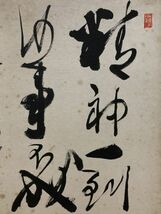 精神一到
何事不成